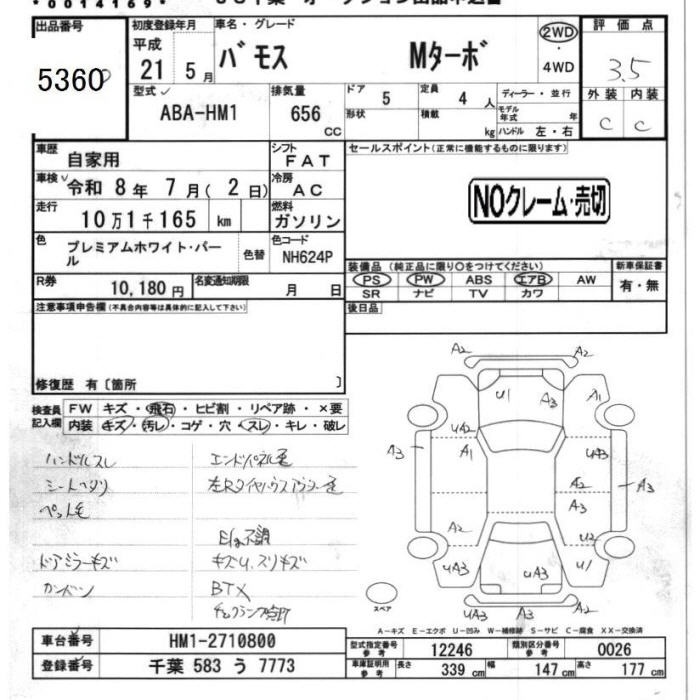 ・0014169・ ＵＳＳ千葉 オークション出品申込書
出品番号
5360
初度登録年月
平成
21 5 月
車名・グレード
バモス Mターボ
2WD
・
4WD
評価点
3.5
外装 内装
C C
型式
ABA-HM1
排気量
656
CC
ドア 5
形状
定員 4 人
積載 kg
ディーラー・並行
モデル年式 年
ハンドル 左・右
車歴 自家用
シフト FAT
車検 令和 8 年 7 月 ( 2 日 )
冷房 AC
走行 10 万 1 千 165 km
燃料 ガソリン
色 プレミアムホワイト・パール
色替
色コード NH624P
R券 10,180 円
名変通知期限 月 日
セールスポイント(正常に機能するものに限ります)
NOクレーム・売切
装備品 (純正品に限り○をつけてください)
PS PW ABS エアB AW
SR ナビ TV カワ
新車保証書
有・無
注意事項申告欄(不具合内容等は具体的に記入して下さい)
後日品
修復歴 有〔箇所 〕
検査員記入欄
FW キズ・飛石・ヒビ割・リペア跡・×要
内装 キズ・汚レ・コゲ・穴・スレ・キレ・破レ
ハンドルスレ
シートヘタリ
ドアミラーキズ
エンドパネル歪
左Rタイヤハウスアウター歪
キズU、スリキズ
BTX
A2
A2
U1
A3
A1
UA2
A1
UA3
A3
A2
A3
A3
A2
U2
UA3
UA3
U1
UA3
A3
A2
スペア
A－キズ E－エクボ U－凹み W－補修跡 S－サビ C－腐食 XX－交換済
車台番号 HM1-2710800
登録番号 千葉 583 う 7773
型式指定番号 参考 12246
類別区分番号 参考 0026
車庫証明用 参考 長さ 339 cm 幅 147 cm 高さ 177 cm